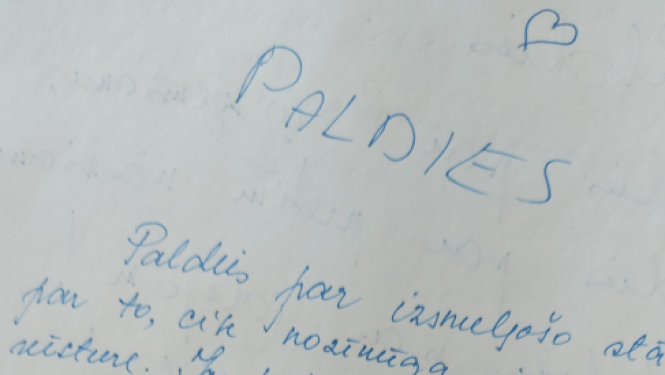 PALDIES
Paldies par izsmeļošo stā
par to, cik nozīmīga
vēsture.